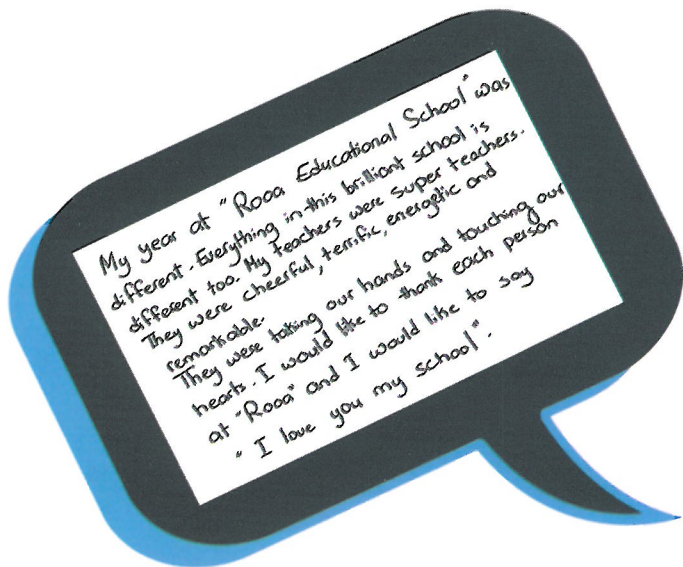 My year at "Rooa Educational School" was
different. Everything in this brilliant school is
different too. My teachers were super teachers.
They were cheerful, terrific, energetic and
remarkable.
They were taking our hands and touching our
hearts. I would like to thank each person
at "Rooa" and I would like to say
" I love you my school".